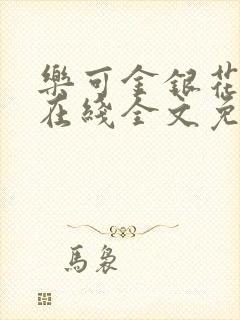 樂可金銀花
在綫全文免
馬裊